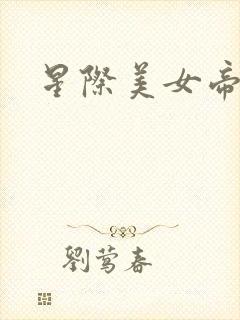 星際美女帝
劉莺春